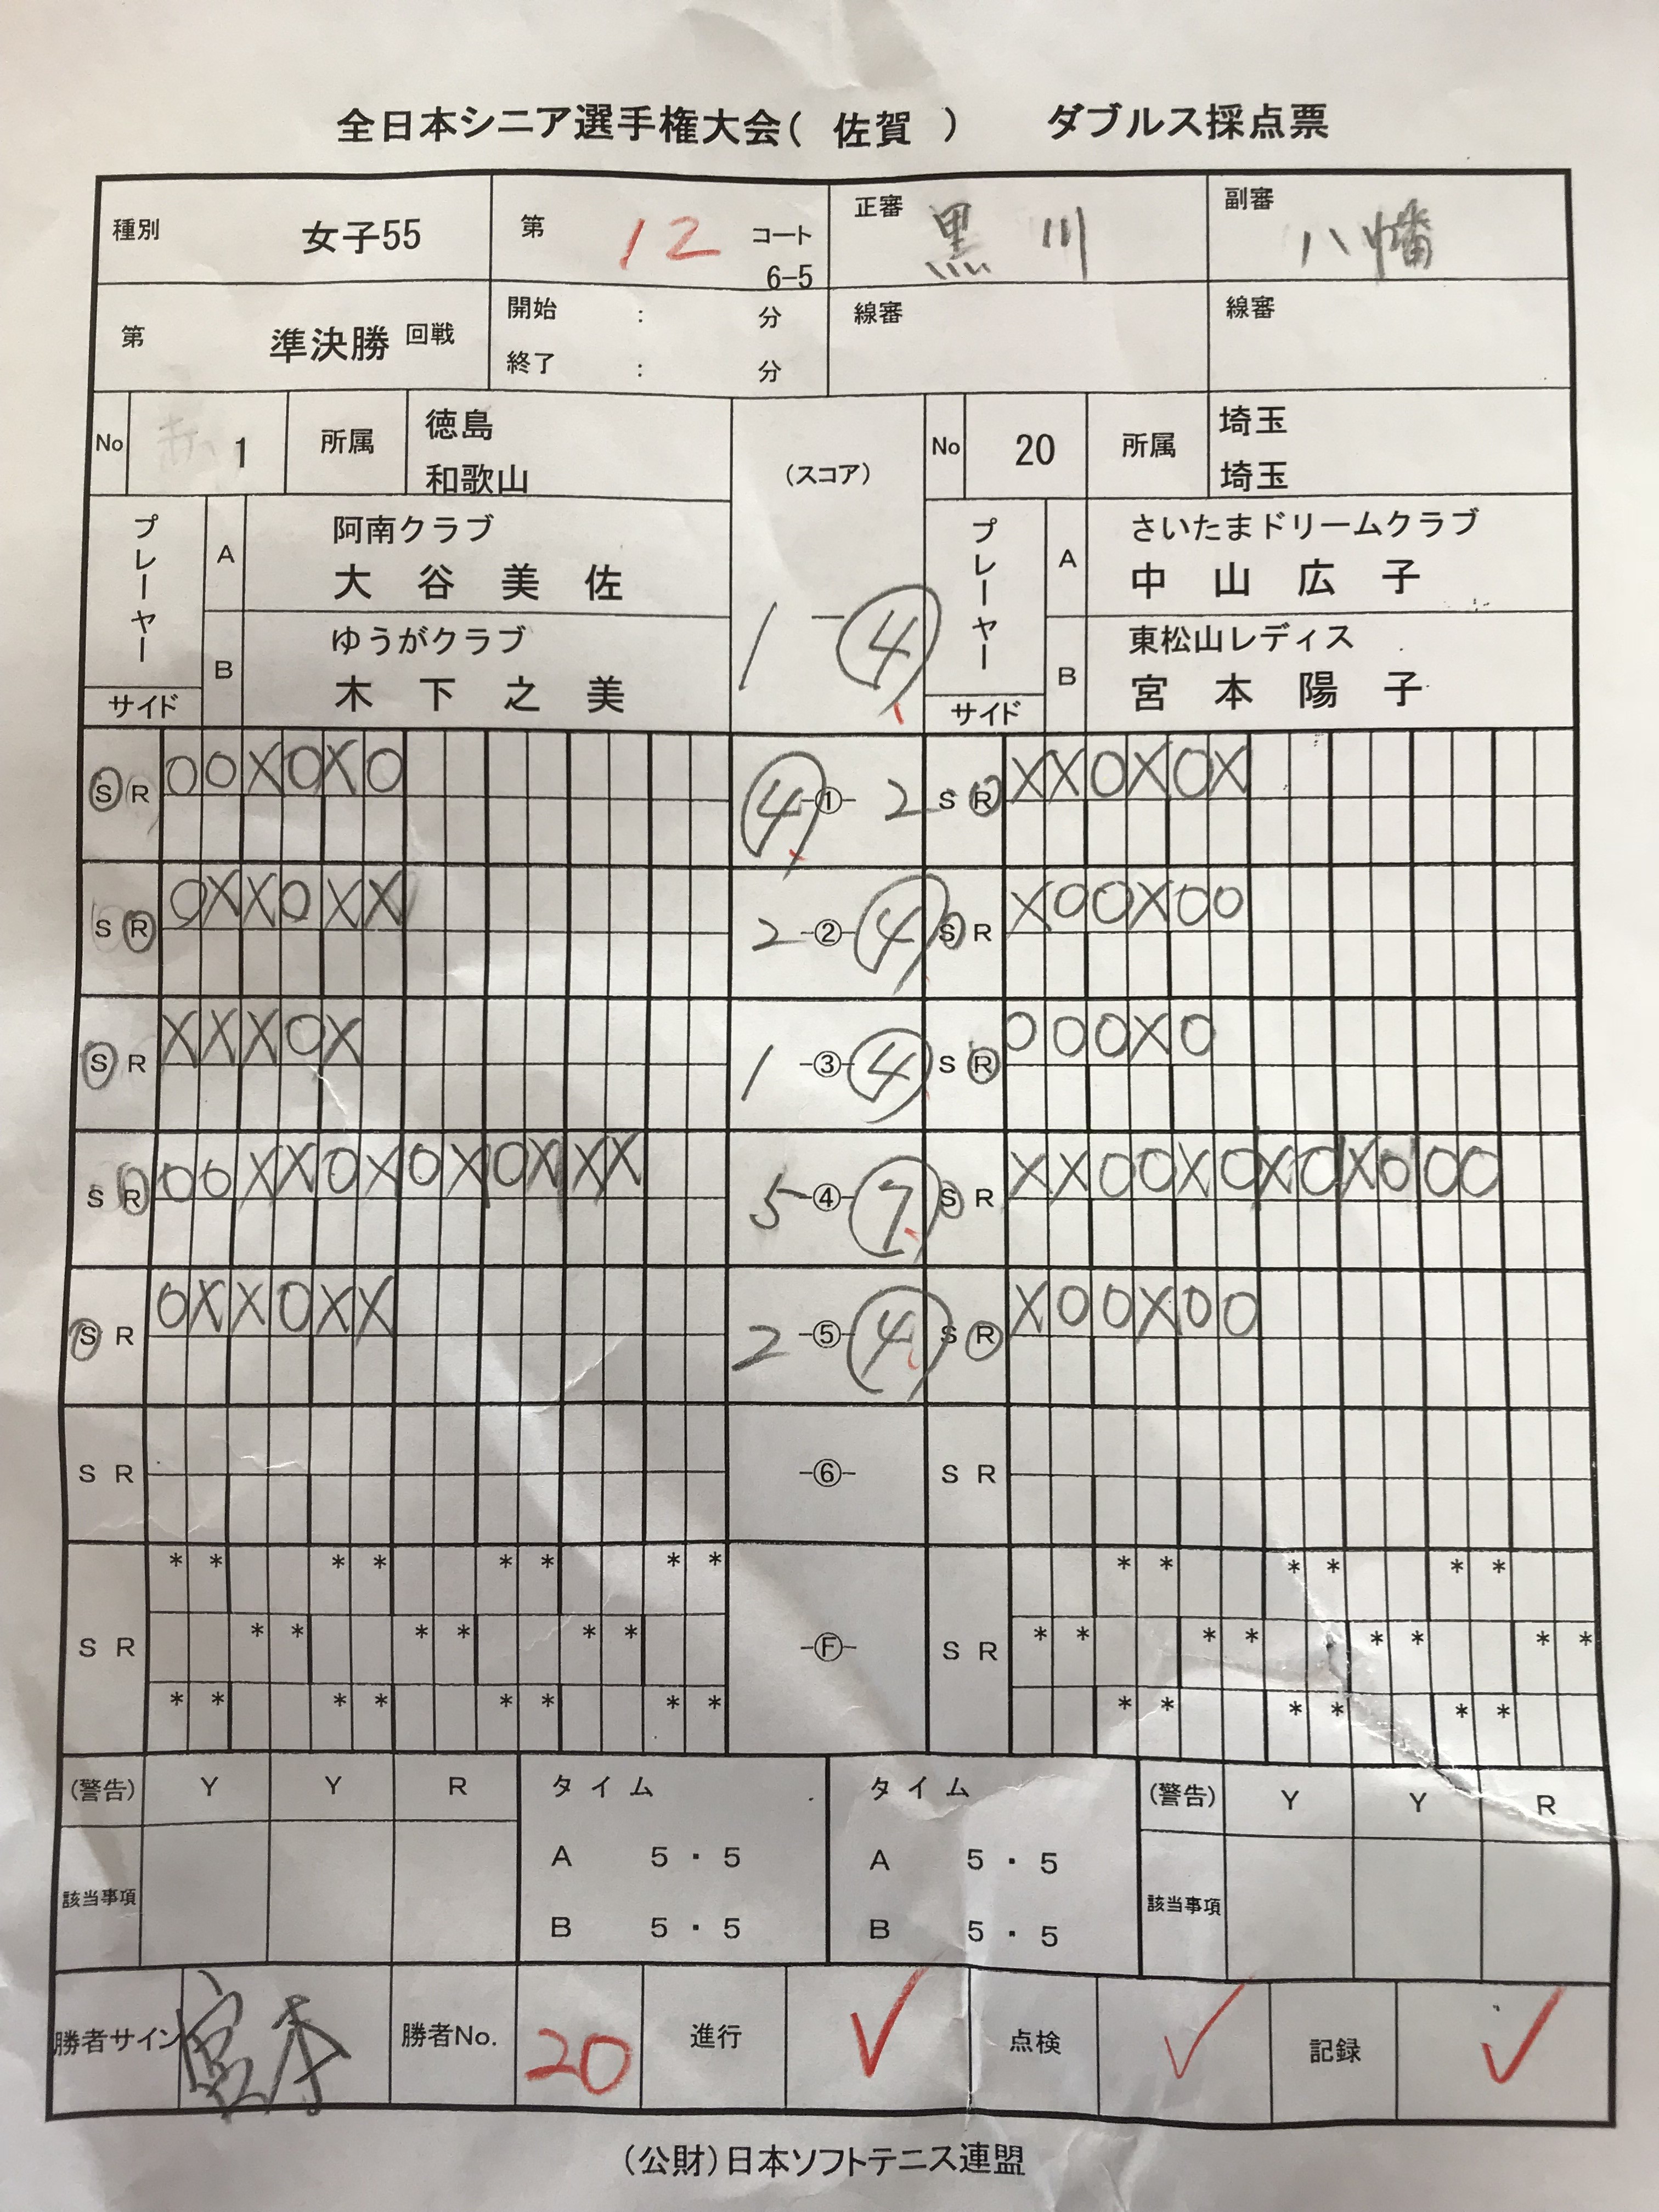 全日本シニア選手権大会( 佐賀 ) ダブルス採点票
種別 女子55 第 12 コート 6-5 正審 黒川 副審 八幡
第 準決勝 回戦 開始 : 分 線審 線審
終了 : 分
No 1 所属 徳島 和歌山 (スコア) No 20 所属 埼玉 埼玉
プレーヤー A 阿南クラブ プレーヤー A さいたまドリームクラブ
大谷美佐 中山広子
B ゆうがクラブ 1 - 4 B 東松山レディス
木下之美 宮本陽子
サイド サイド
S R O O X O X O 4 -①- 2 S R X X O X O X
S R O X X O X X 2 -②- 4 S R X O O X O O
S R X X X O X 1 -③- 4 S R O O O X O
S R O O X X O X O X O X X X 5 -④- 7 S R X X O O X O X O X O O O
S R O X X O X X 2 -⑤- 4 S R X O O X O O
S R -⑥- S R
* * * * * * * * * * * * * *
S R * * * * * * -Ⓕ- S R * * * * * * * *
* * * * * * * * * * * * * *
(警告) Y Y R タイム タイム (警告) Y Y R
該当事項 A 5・5 A 5・5 該当事項
B 5・5 B 5・5
勝者サイン 宮本 勝者No. 20 進行 ✓ 点検 ✓ 記録 ✓
(公財)日本ソフトテニス連盟